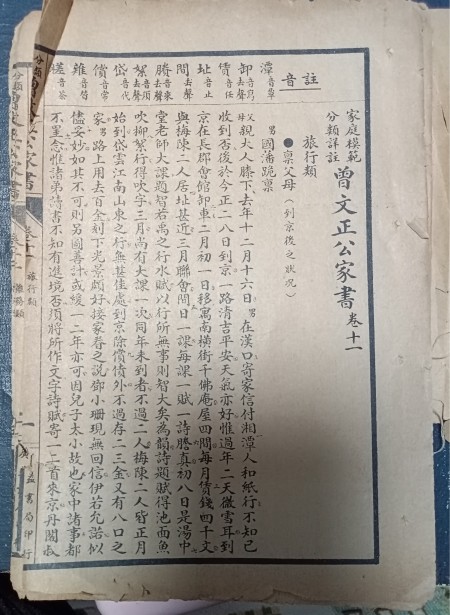 家庭模範
分類詳註
曾文正公家書 卷十一
旅行類
●稟父母(到京後之狀況)
男國藩跪稟
父母親大人膝下、去年十二月十六日男在漢口寄家信付湘潭人和紙行不知已
收到否後於今正二八日到京一路清吉平安天氣亦好惟過年二天微雪耳到
京在長郡會館卸車二月初一日移寓南橫街千佛庵屋四間每月賃錢四千文
與梅陳二人居址甚近三人聯會間日一課每課一賦一詩謄真初八日是湯中
堂老師大課題智若禹之行水賦以行所無事則智大矣為韻詩題賦得池面魚
吹柳絮行得吹字三月尚有大課一次同年未到者不過一二人梅陳二人皆正月
始到岱雲江南山東之行無甚佳處到京除償債外不過存二三金又有八口之
家男路上用去百金刻下光景頗好接家眷之說鄧小珊現無回信伊若允諾似
儘妥妙如其不可則另圖善計或緩一二年亦可因兒子太小故也家中諸事都
不罣念惟諸弟讀書不知有進境否須將所作文字詩賦寄一二首來京丹閣叔
註音
潭音覃
卸音寫去聲
賃音任去聲
址音止
間去聲
岱音代
償音常
分類曾文正公家書
卷十一
旅行類
一
書局印行